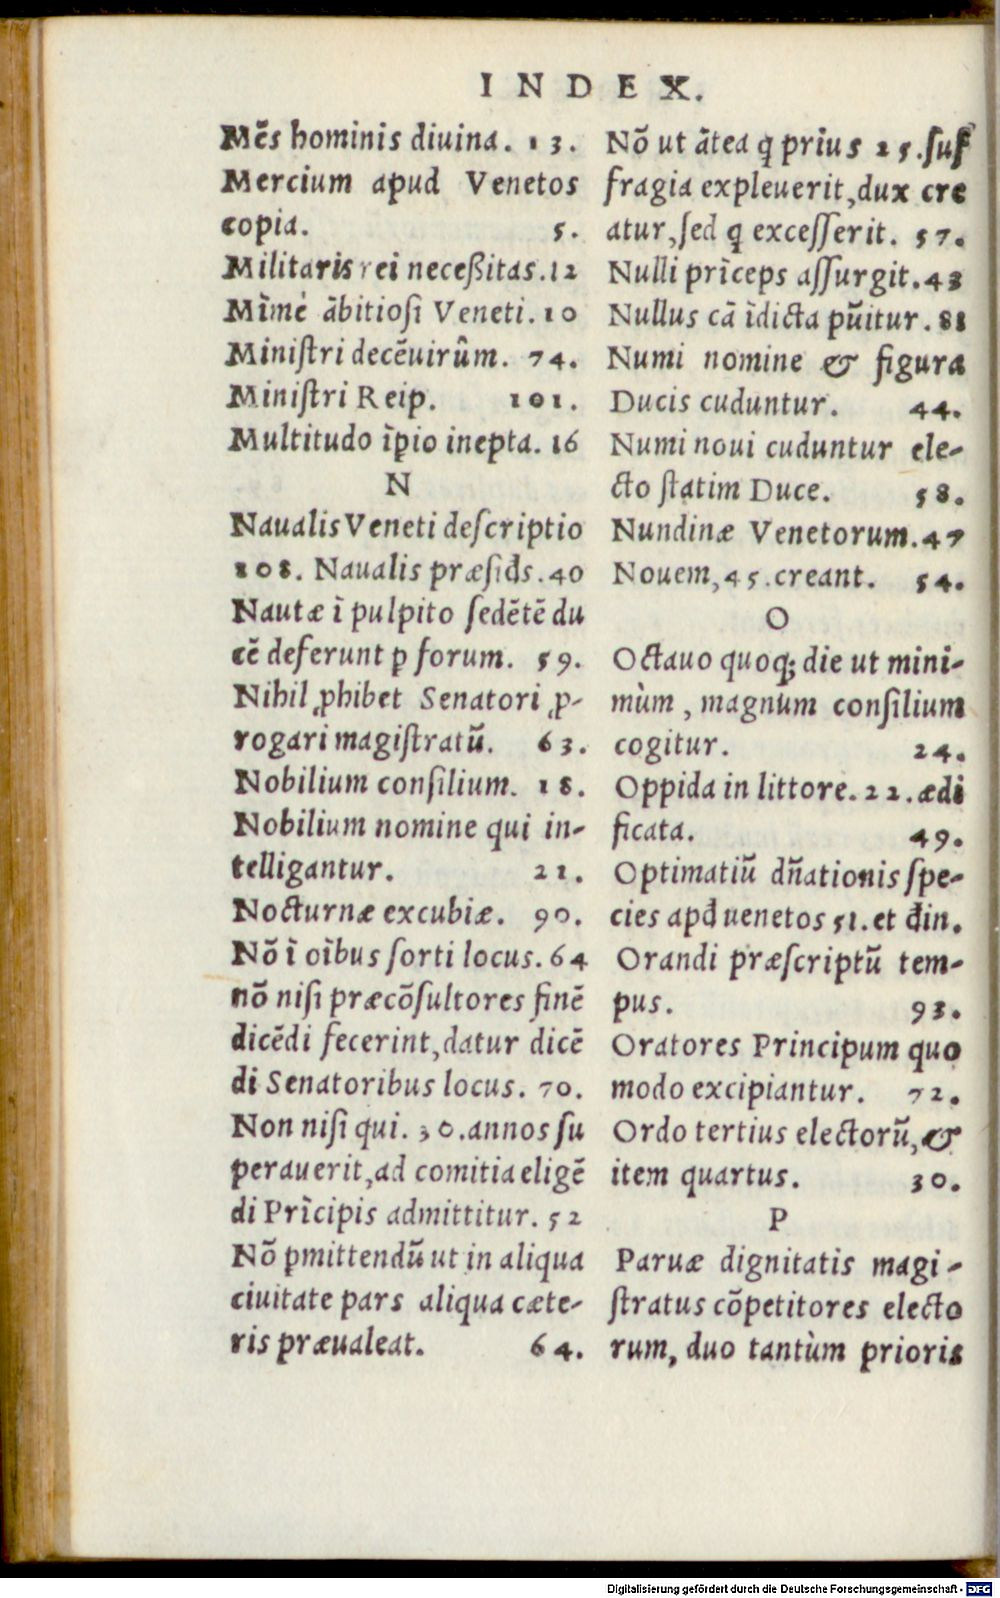 INDEX.
Mēs hominis diuina. 13.
Mercium apud Venetos
copia. 5.
Militaris rei neceßitas. 12
Mìmè ābitioſi Veneti. 10
Miniſtri decēuirûm. 74.
Miniſtri Reip. 101.
Multitudo īꝑio inepta. 16
N
Naualis Veneti deſcriptio
108. Naualis præſid̄s. 40
Nautæ ī pulpito ſedētē du
cē deferunt ꝑ forum. 59.
Nihil ꝓhibet Senatori ꝓ-
rogari magiſtratū. 63.
Nobilium conſilium. 18.
Nobilium nomine qui in-
telligantur. 21.
Nocturnæ excubiæ. 90.
Nō ī oībus ſorti locus. 64
nō niſi præcōſultores finē
dicēdi fecerint, datur dicē
di Senatoribus locus. 70.
Non niſi qui. 30. annos ſu
perauerit, ad comitia eligē
di Prīcipis admittitur. 52
Nō ꝑmittendū ut in aliqua
ciuitate pars aliqua cæte-
ris præualeat. 64.
Nō ut ātea q̄ prius 25. ſuf
fragia expleuerit, dux cre
atur, ſed q̄ exceſſerit. 57.
Nulli prīceps aſſurgit. 43
Nullus cā īdicta pūitur. 88
Numi nomine & figura
Ducis cuduntur. 44.
Numi noui cuduntur ele-
cto ſtatim Duce. 58.
Nundinæ Venetorum. 47
Nouem, 45. creant. 54.
O
Octauo quoq; die ut mini-
mùm, magnum conſilium
cogitur. 24.
Oppida in littore. 22. ædi
ficata. 49.
Optimatiū dn̄ationis ſpe-
cies apđ uenetos 51. et đin.
Orandi præſcriptū tem-
pus. 93.
Oratores Principum quo
modo excipiantur. 72.
Ordo tertius electorū, &
item quartus. 30.
P
Paruæ dignitatis magi-
ſtratus cōpetitores electo
rum, duo tantùm prioris
Digitalisierung gefördert durch die Deutsche Forschungsgemeinschaft - DFG